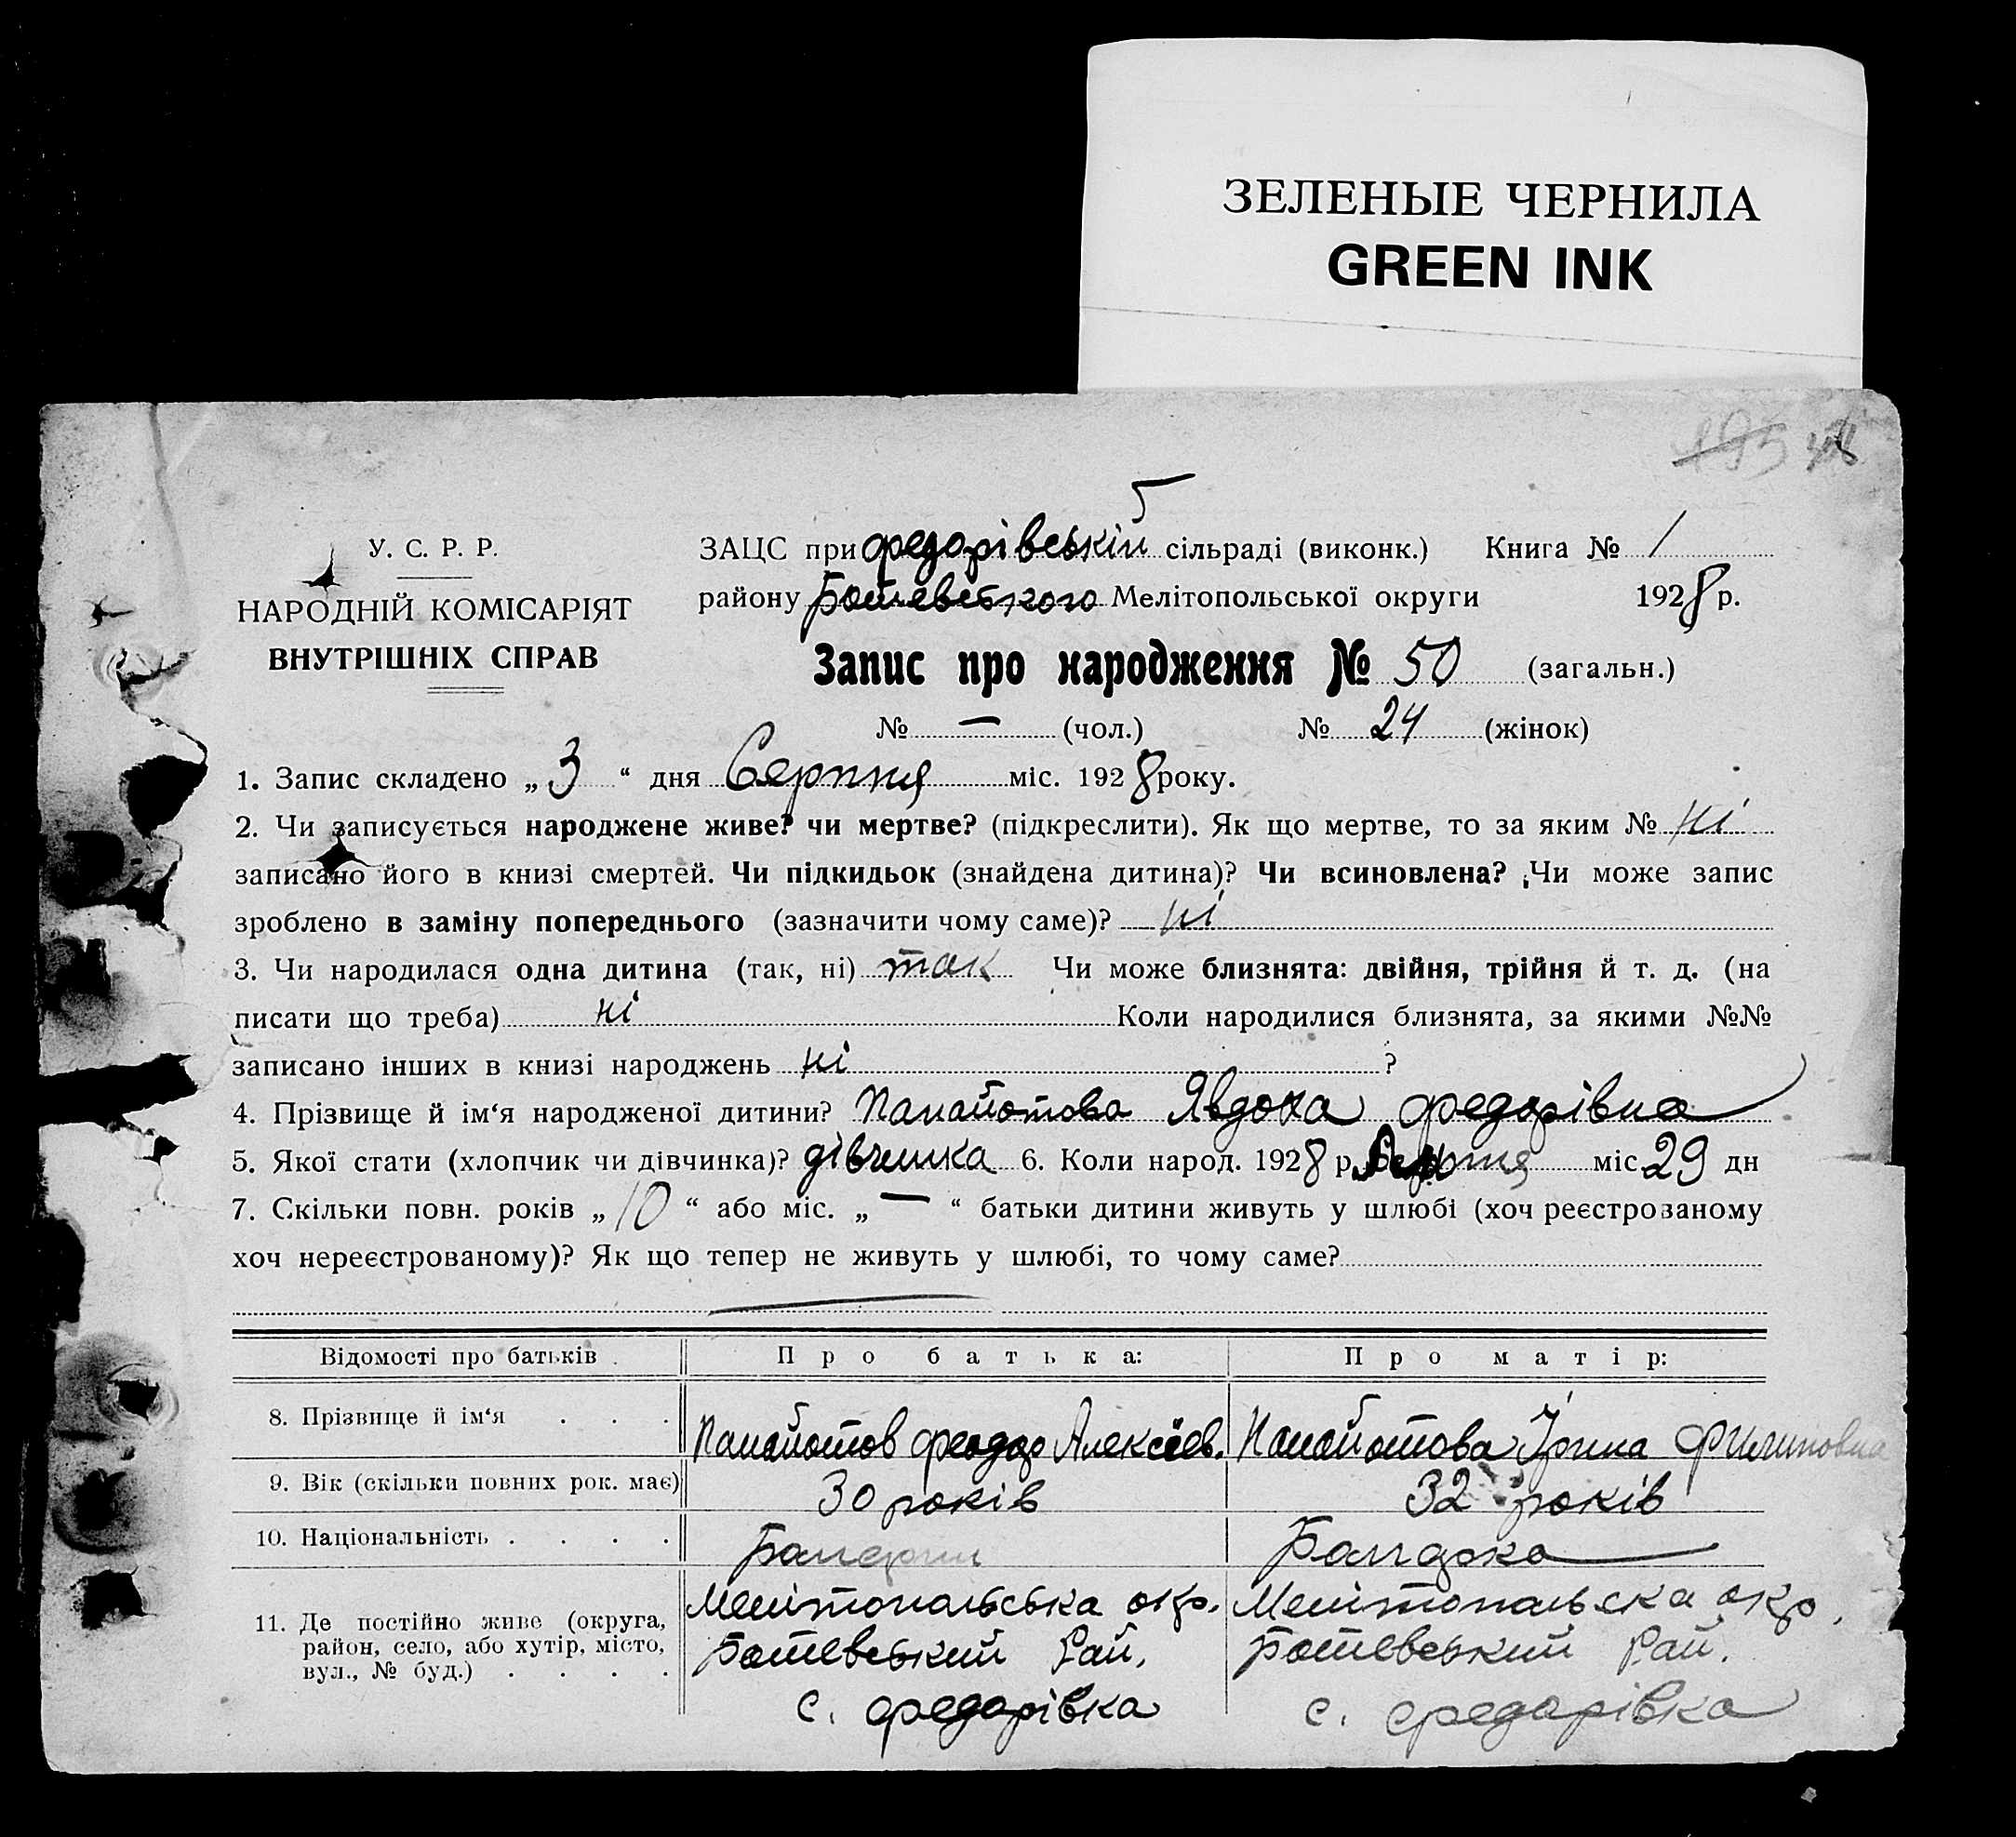 ЗЕЛЕНЫЕ ЧЕРНИЛА
GREEN INK
195
У. С. Р. Р.
НАРОДНІЙ КОМІСАРІЯТ
ВНУТРІШНІХ СПРАВ
ЗАЦС при Федорівській сільраді (виконк.) Книга № 1
району Ботевського Мелітопольської округи 1928 р.
Запис про народження № 50 (загальн.)
№ — (чол.) № 24 (жінок)
1. Запис складено „ 3 “ дня Серпня міс. 1928 року.
2. Чи записується народжене живе? чи мертве? (підкреслити). Як що мертве, то за яким № ні
записано його в книзі смертей. Чи підкидьок (знайдена дитина)? Чи всиновлена? Чи може запис
зроблено в заміну попереднього (зазначити чому саме)? ні
3. Чи народилася одна дитина (так, ні) так Чи може близнята: двійня, трійня й т. д. (на
писати що треба) ні Коли народилися близнята, за якими №№
записано інших в книзі народжень ні ?
4. Прізвище й ім‘я народженої дитини? Панайотова Явдоха Федорівна
5. Якої стати (хлопчик чи дівчинка)? дівчинка 6. Коли народ. 1928 р. міс 29 дн
7. Скільки повн. років „ 10 “ або міс. „ — “ батьки дитини живуть у шлюбі (хоч реєстрованому
хоч нереєстрованому)? Як що тепер не живуть у шлюбі, то чому саме?
Відомості про батьків Про батька: Про матір:
8. Прізвище й ім‘я . . . Панайотов Феодор Алексеев. Панайотова Ірина Филиповна
9. Вік (скільки повних рок. має) 30 років 32 років
10. Національність . . . . Болгарин Болгарка
11. Де постійно живе (округа, Мелітопольська окр. Мелітопольска окр.
район, село, або хутір, місто, Ботевський Рай. Ботевський Рай.
вул., № буд.) . . . . с. Федорівка с. Федорівка